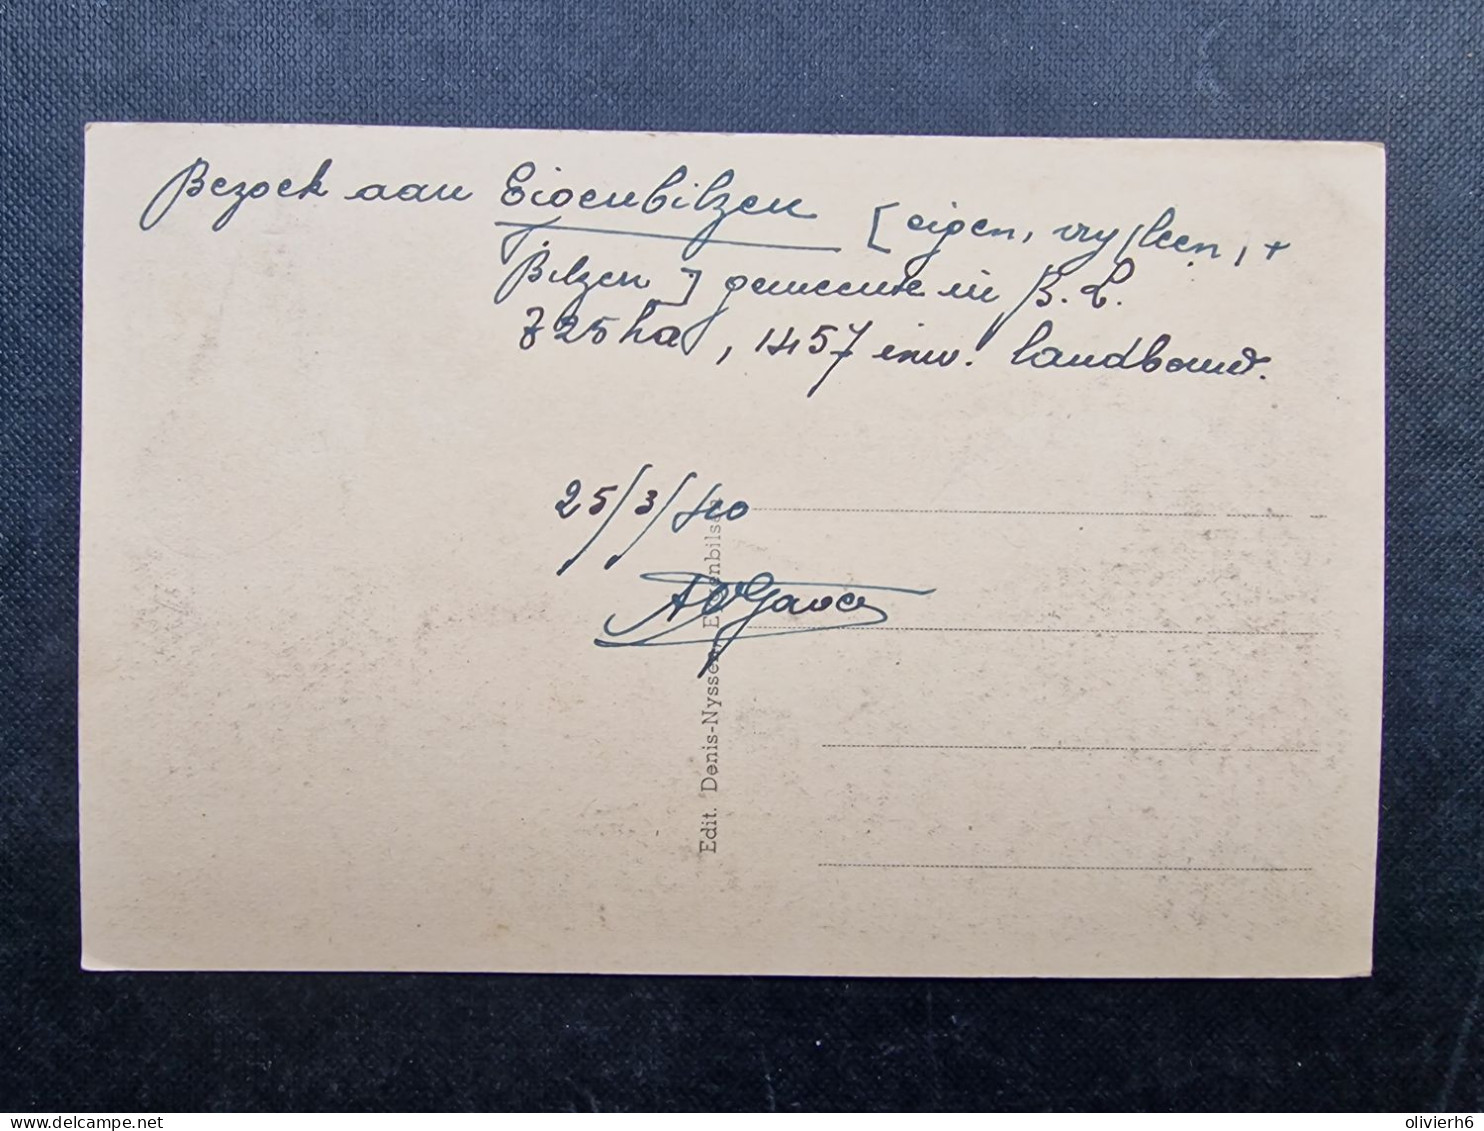 Bezoek aan Eigenbilzen [eigen, vry leen, +
Bilzen] gemeente in B. L.
725 ha, 1457 inw. landbouw.
25/3/40
Edit. Denis-Nyssen, Eigenbilsen
olivierh6